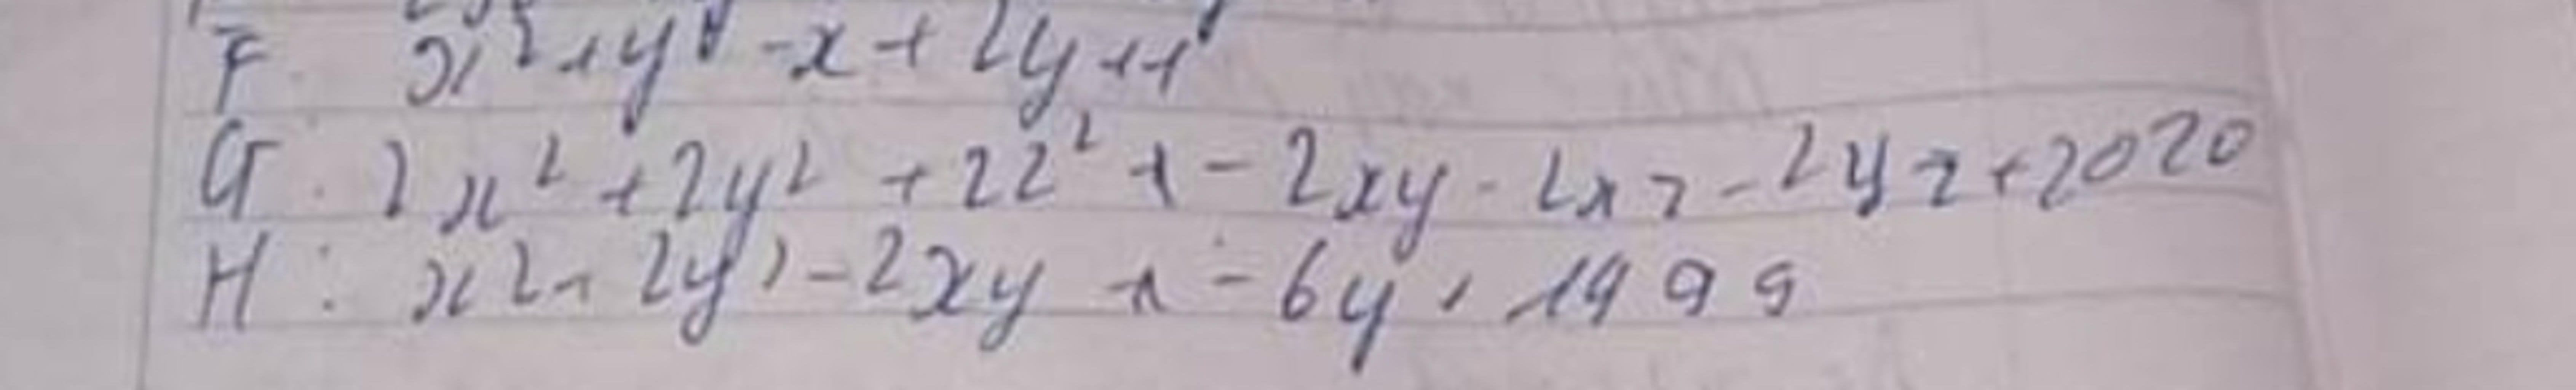 F. x² + y² - x + 2y + 1
G. 2x² + 2y² + 2z² + - 2xy - 2xz - 2yz + 2020
H: x² + 2y² - 2xy + - 6y + 1999